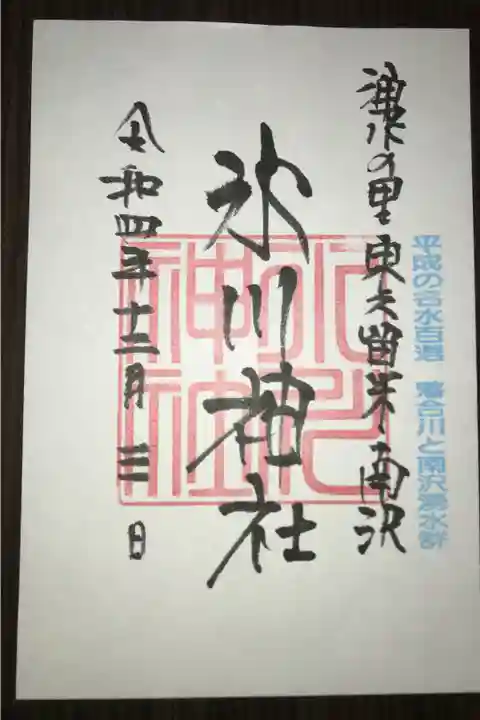 平成の名水百選 落合川と南沢湧水群
湧水の里 東久留米 南沢
氷川神社
氷川神社
令和四年十二月三日